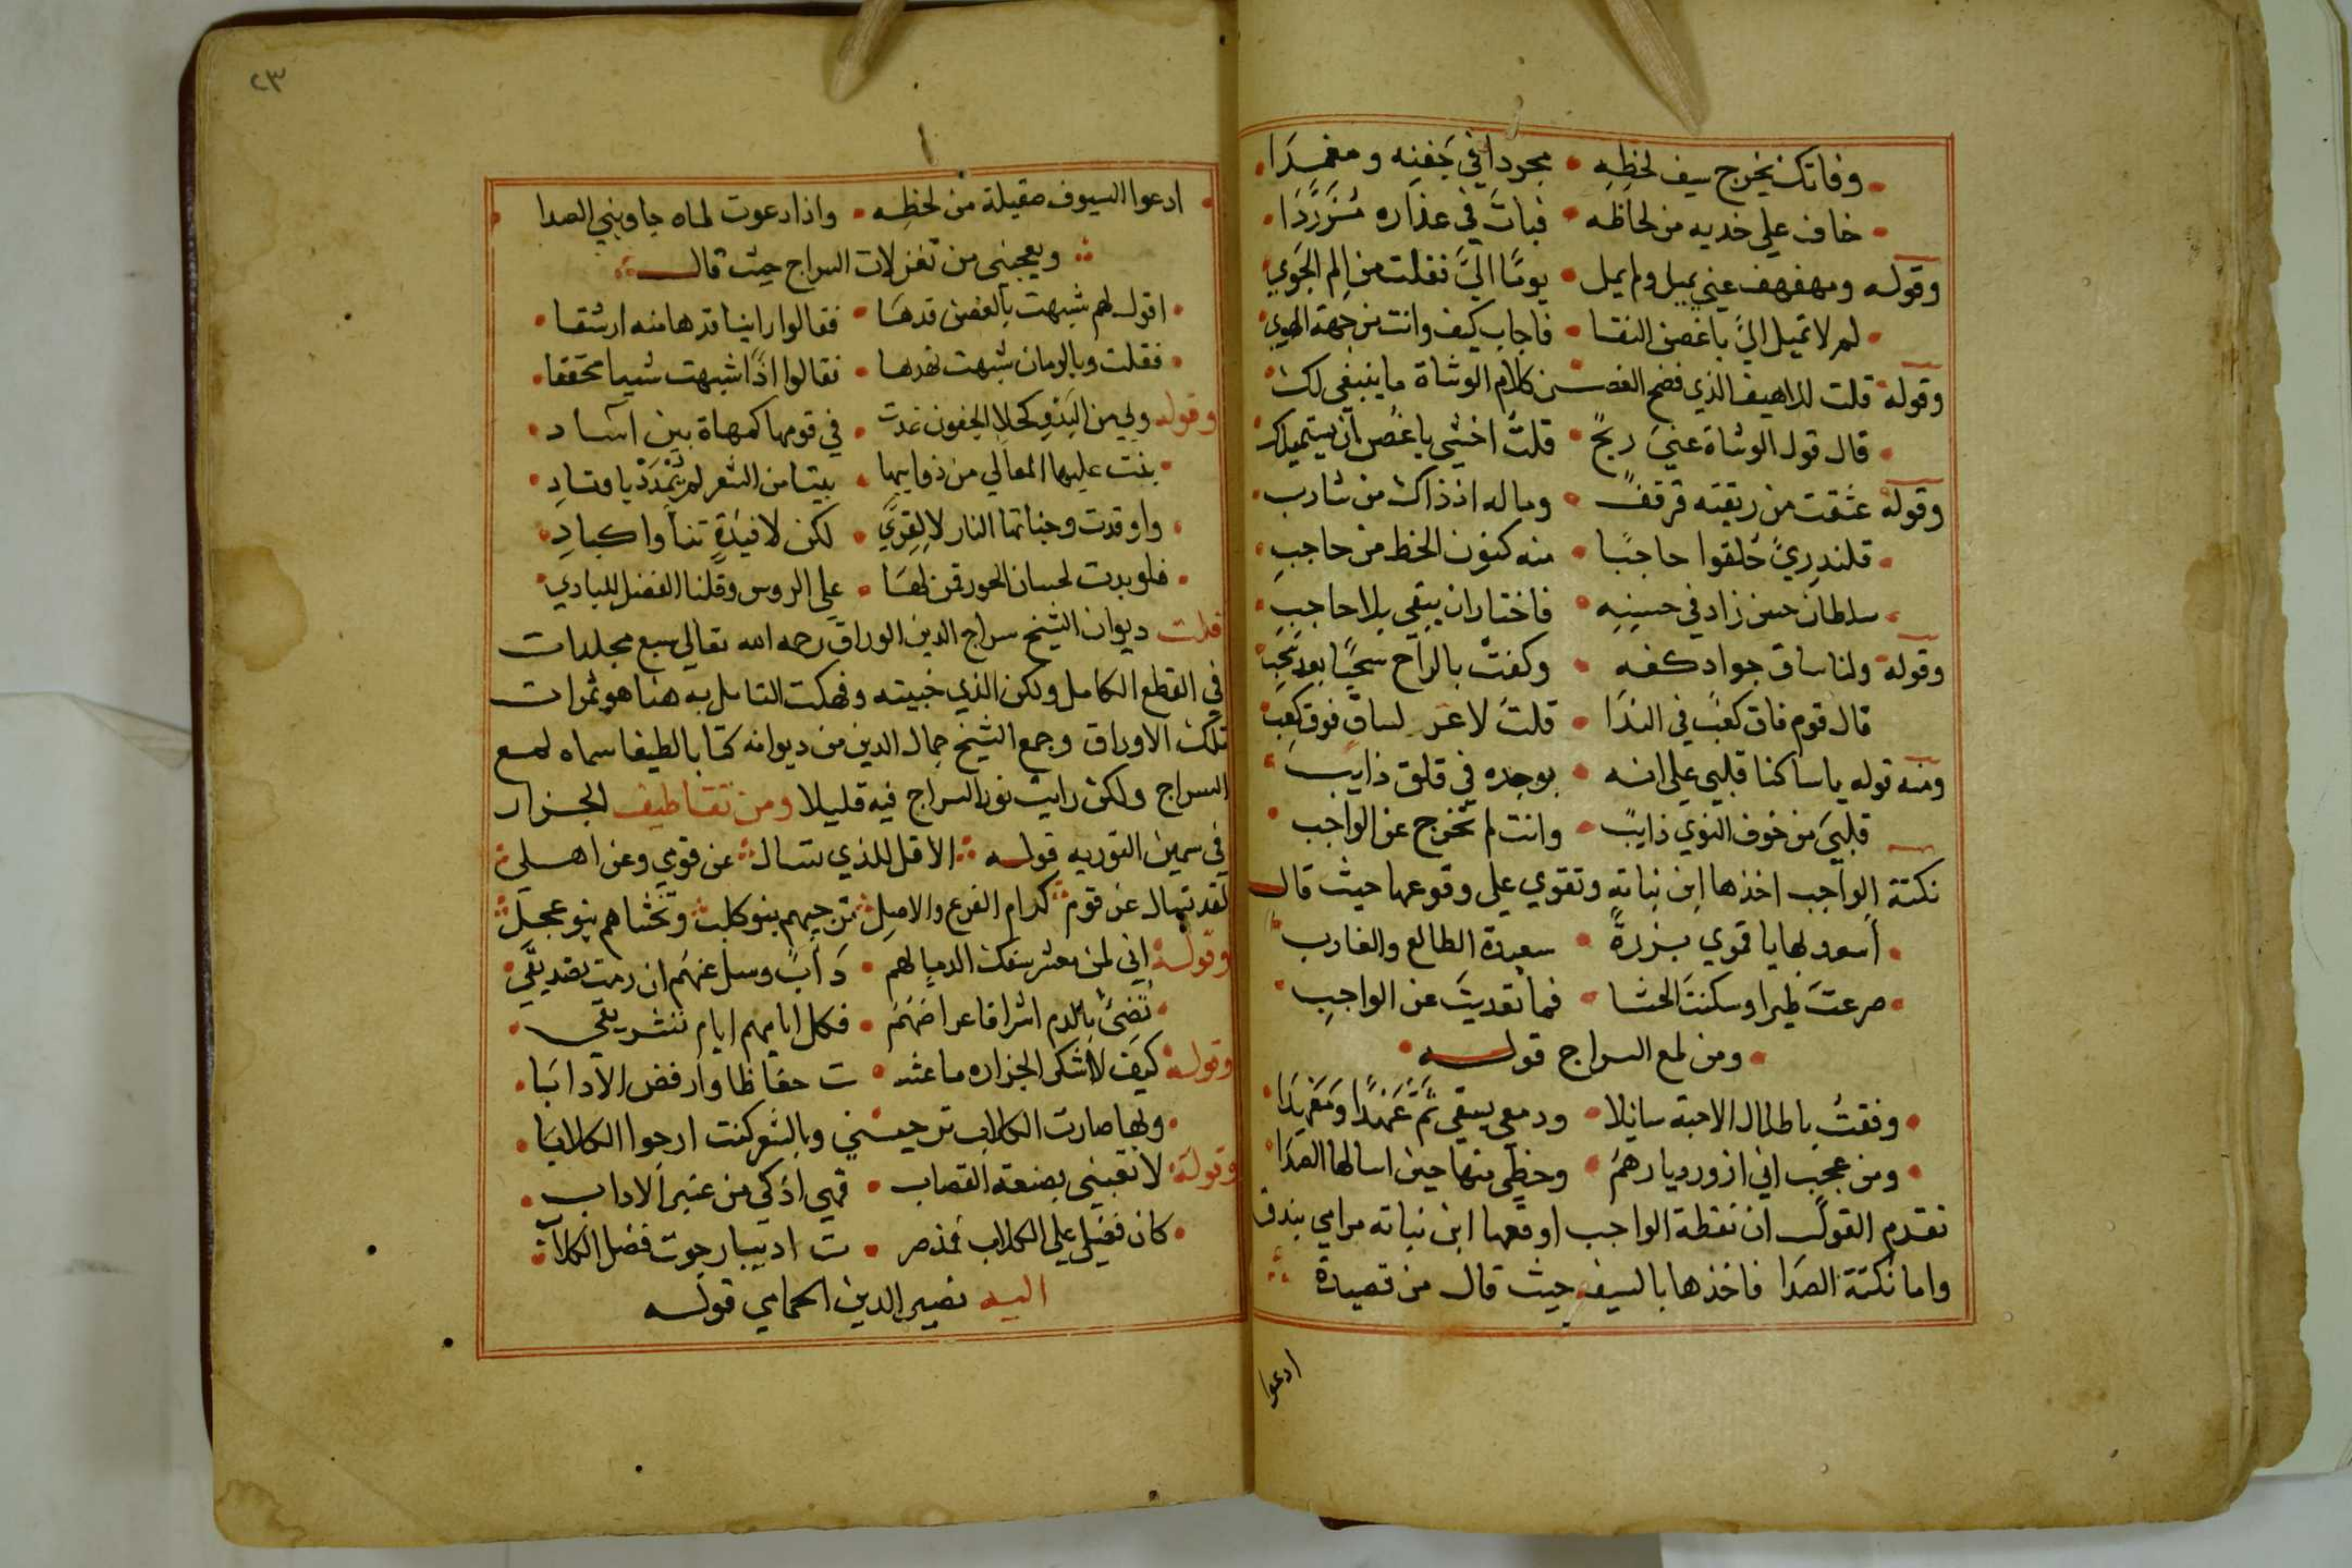 وفاتك يخرج سيف لحظه • مجردا في جفنه ومغمدا
خاف علي خديه من لحاظه • فبات في عذاره مزردا
وقوله ومهفهف عني يميل ولم يمل • يوما الي فقلت من الم الجوي
لم لا تميل الي يا غصن النقا • فاجاب كيف وانت من جهة الهوي
وقوله قلت للاهيف الذي فضح الغصن كلام الوشاة ما ينبغي لك
قال قول الوشاة عني ريح • قلت اخشي يا غصن ان يستميلك
وقوله عشقت من ريقته قرقف • وما له اذ ذاك من شارب
قلندري حلقوا حاجبا • منه كنون الخط من حاجب
سلطان حسن زاد في حسنه • فاختار ان يبقي بلا حاجب
وقوله ولنا ساق جواد كفه • وكفت بالراح سحبا بعد سحب
قال قوم فاق كعب في الندا • قلت لا عز لساق فوق كعب
ومنه قوله يا ساكنا قلبي علي انه • بوجده في قلق ذايب
قلبي من خوف النوي ذايب • وانت لم تخرج عن الواجب
نكتة الواجب اخذها ابن نباته وتقوي علي وقوعها حيث قال
اسعد بها يا قمري برزة • سعيدة الطالع والغارب
صرعت طيرا وسكنت الحشا • فما تعديت عن الواجب
ومن لمع السراج قوله
وقفت باطلال الاحبة سايلا • ودمعي يسقي ثم عهدا ومعهدا
ومن عجب اني ازور ديارهم • وحظي منها حين اسالها الصدا
تقدم القول ان نقطة الواجب اوقعها ابن نباته مرامي بندق
واما نكتة الصدا فاخذها بالسيف حيث قال من قصيدة
ادعوا
٢٣
ادعوا السيوف صقيلة من لحظه • واذا دعوت لماه جاوبني الصدا
ويعجبني من تغزلات السراج حيث قال
اقول لهم شبهت بالغصن قدها • فقالوا راينا قدها منه ارشقا
فقلت وبالرمان شبهت نهدها • فقالوا اذا شبهت شييا محققا
وقوله ولي من البدو كحلا الجفون غدت • في قومها كمهاة بين اساد
بنت عليها المعالي من ذوايبها • بيتا من الشعر لم يمدد باوتاد
واوقدت وجناتها النار لا لقري • لكن لافيدة تنا واكباد
فلو بدت لحسان الحور قمن لها • علي الروس وقلنا الفضل للبادي
قلت ديوان الشيخ سراج الدين الوراق رحمه الله تعالي سبع مجلدات
في القطع الكامل ولكن الذي جنيته وفكهت التامل به هنا هو ثمرات
تلك الاوراق وجمع الشيخ جمال الدين من ديوانه كتابا لطيفا سماه لمع
السراج ولكن رايت نور السراج فيه قليلا ومن تقاطيف الجزار
في سمين التوريه قوله الا قل للذي يسال عن قومي وعن اهلي
لقد تسال عن قوم كرام الفرع والاصل ترجيهم بنو كلب وتخشاهم بنو عجل
وقوله اني لمن معشر سفك الدما لهم • داب وسل عنهم ان رمت تصديقي
تضئ بالدم اشراقا عراصهم • فكل ايامهم ايام تشريق
وقوله كيف لا اشكر الجزاره ما عشت • ت حفاظا وارفض الادابا
وبها صارت الكلاب ترجيني وبالشعر كنت ارجوا الكلابا
وقوله لا تعبني بصنعة القصاب • فهي اذكي من عنبر الاداب
كان فضلي علي الكلاب فمذ صر • ت اديبا رجوت فضل الكلاب
اليه نصير الدين الحمامي قوله